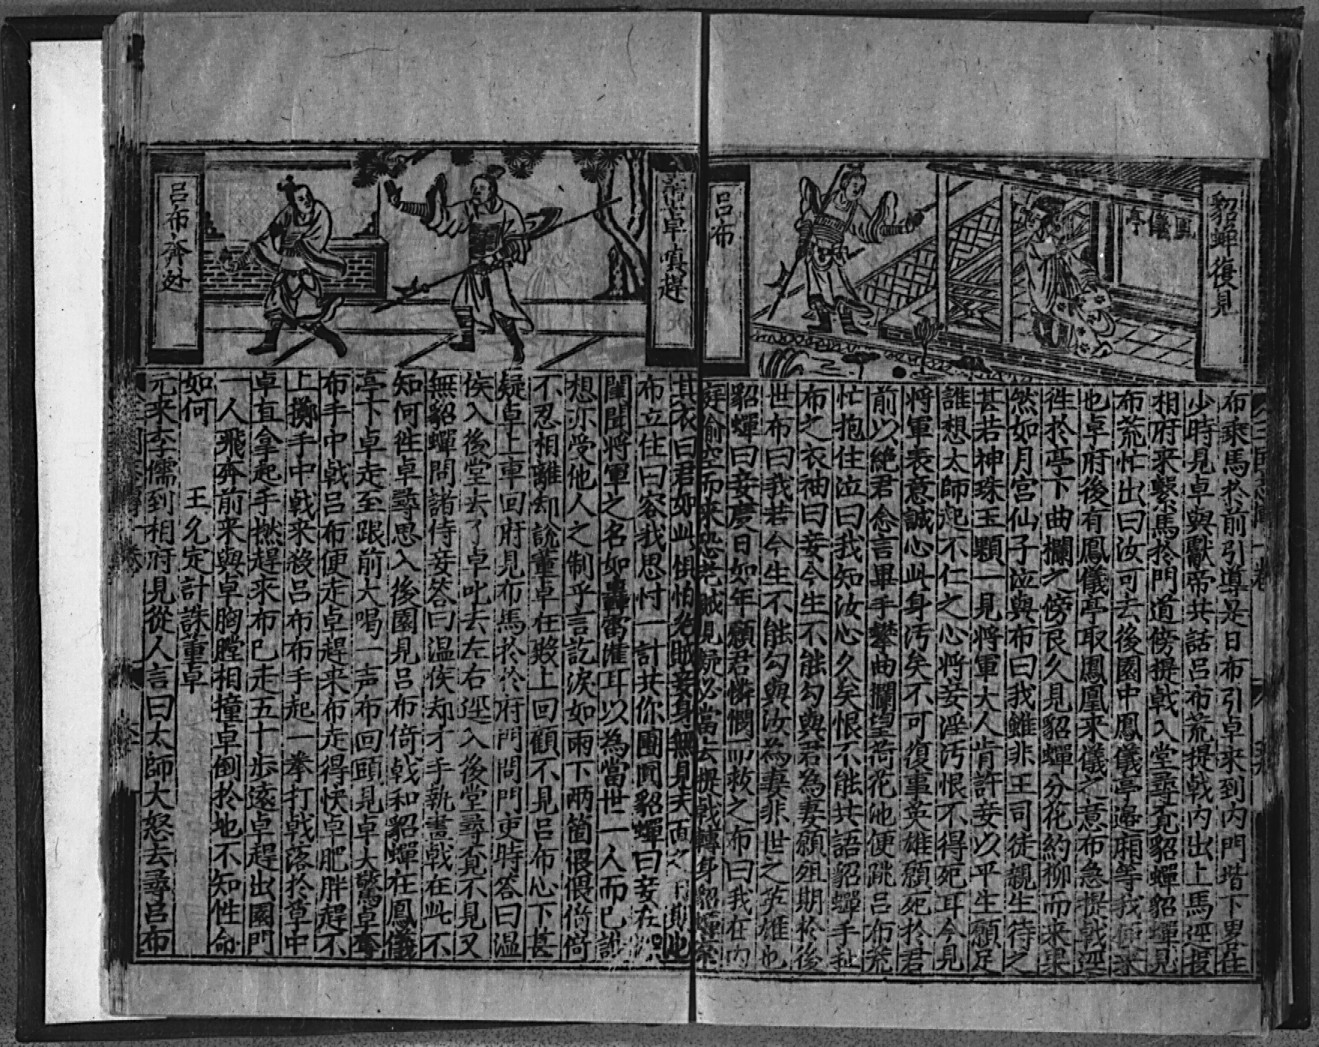 貂蟬復見
呂布
鳳儀亭
布乘馬於前引導是日布引卓來到内門堦下男在
少時見卓與獻帝共話呂布荒提戟内出上馬逕投
相府来繫馬於門道傍提戟入堂尋覔貂蟬貂蟬見
布荒忙出曰汝可去後園中鳳儀亭邊廂等我便來
也卓府後有鳳儀亭取鳳凰来儀之意布急提戟逕
徃於亭下曲欄之傍良久見貂蟬分花約柳而来果
然如月宫仙子泣與布曰我雖非王司徒親生待之
甚若神珠玉顆一見將軍大人肯許妾以平生願足
誰想太師起不仁之心將妾淫污恨不得死耳今見
將軍表意誠心此身污矣不可復事英雄願死於君
前以絶君念言畢手攀曲欄望荷花池便跳呂布荒
忙抱住泣曰我知汝心久矣恨不能共語貂蟬手扯
布之衣袖曰妾今生不能勾與君為妻願殂期於後
世布曰我若今生不能勾與汝為妻非世之英雄也
貂蟬曰妾度日如年願君憐憫而救之布曰我在内
庭偷空而来恐老賊見疑必當去提戟轉身貂蟬牽
董卓嗔趕
呂布奔外
其衣曰君如此惧怕老賊妾身無見天面之期也
布立住曰容我思忖一計共你團圓貂蟬曰妾在深
閨聞將軍之名如轟雷灌耳以為當世一人而已誰
想亦受他人之制乎言訖淚如雨下兩箇偎偎倘倘
不忍相離却說董卓在殿上回顧不見呂布心下甚
疑卓上車回府見布馬於於府門問門吏時答曰温
侯入後堂去了卓叱去左右逕入後堂尋覔不見又
無貂蟬問諸侍妾答曰温侯却才手執畫戟在此不
知何徃卓尋思入後園見呂布倚戟和貂蟬在鳳儀
亭下卓走至跟前大喝一声布回頭見卓大驚卓奪
布手中戟呂布便走卓趕来布走得快卓肥胖趕不
上擲手中戟来殺呂布布手起一拳打戟落於草中
卓直拿起手撚趕来布已走五十步遠卓趕出園門
一人飛奔前来與卓胸膛相撞卓倒於地不知性命
如何
王允定計誅董卓
元来李儒到相府見從人言曰太師大怒去尋呂布